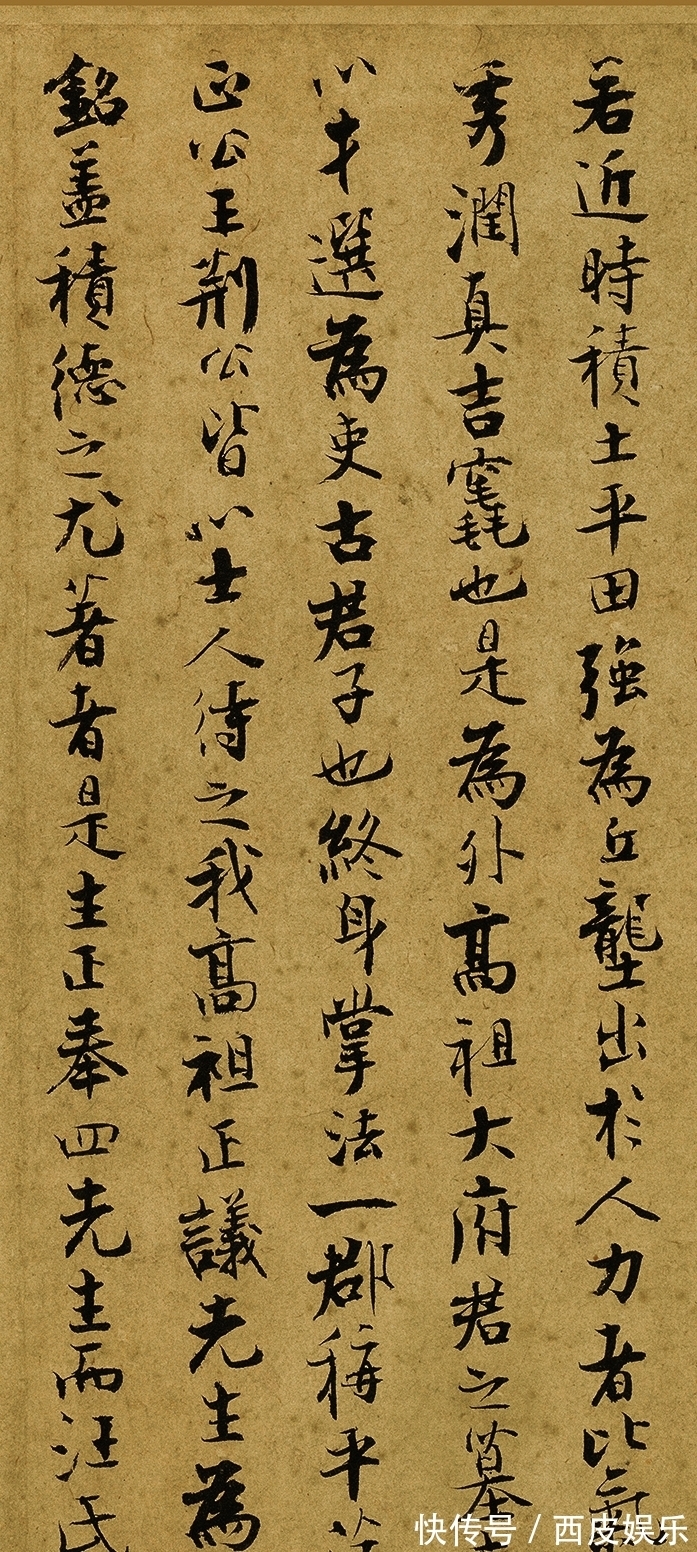 若近時積土平田強為丘壟出於人力者比
秀潤真吉竁也是為外高祖大府君之墓
以才選為吏古君子也終身掌法一郡稱平
正公王荊公皆以士人待之我高祖正議先生為
銘蓋積德之尤著者是生正奉四先生而汪氏
快传号 / 西皮娱乐